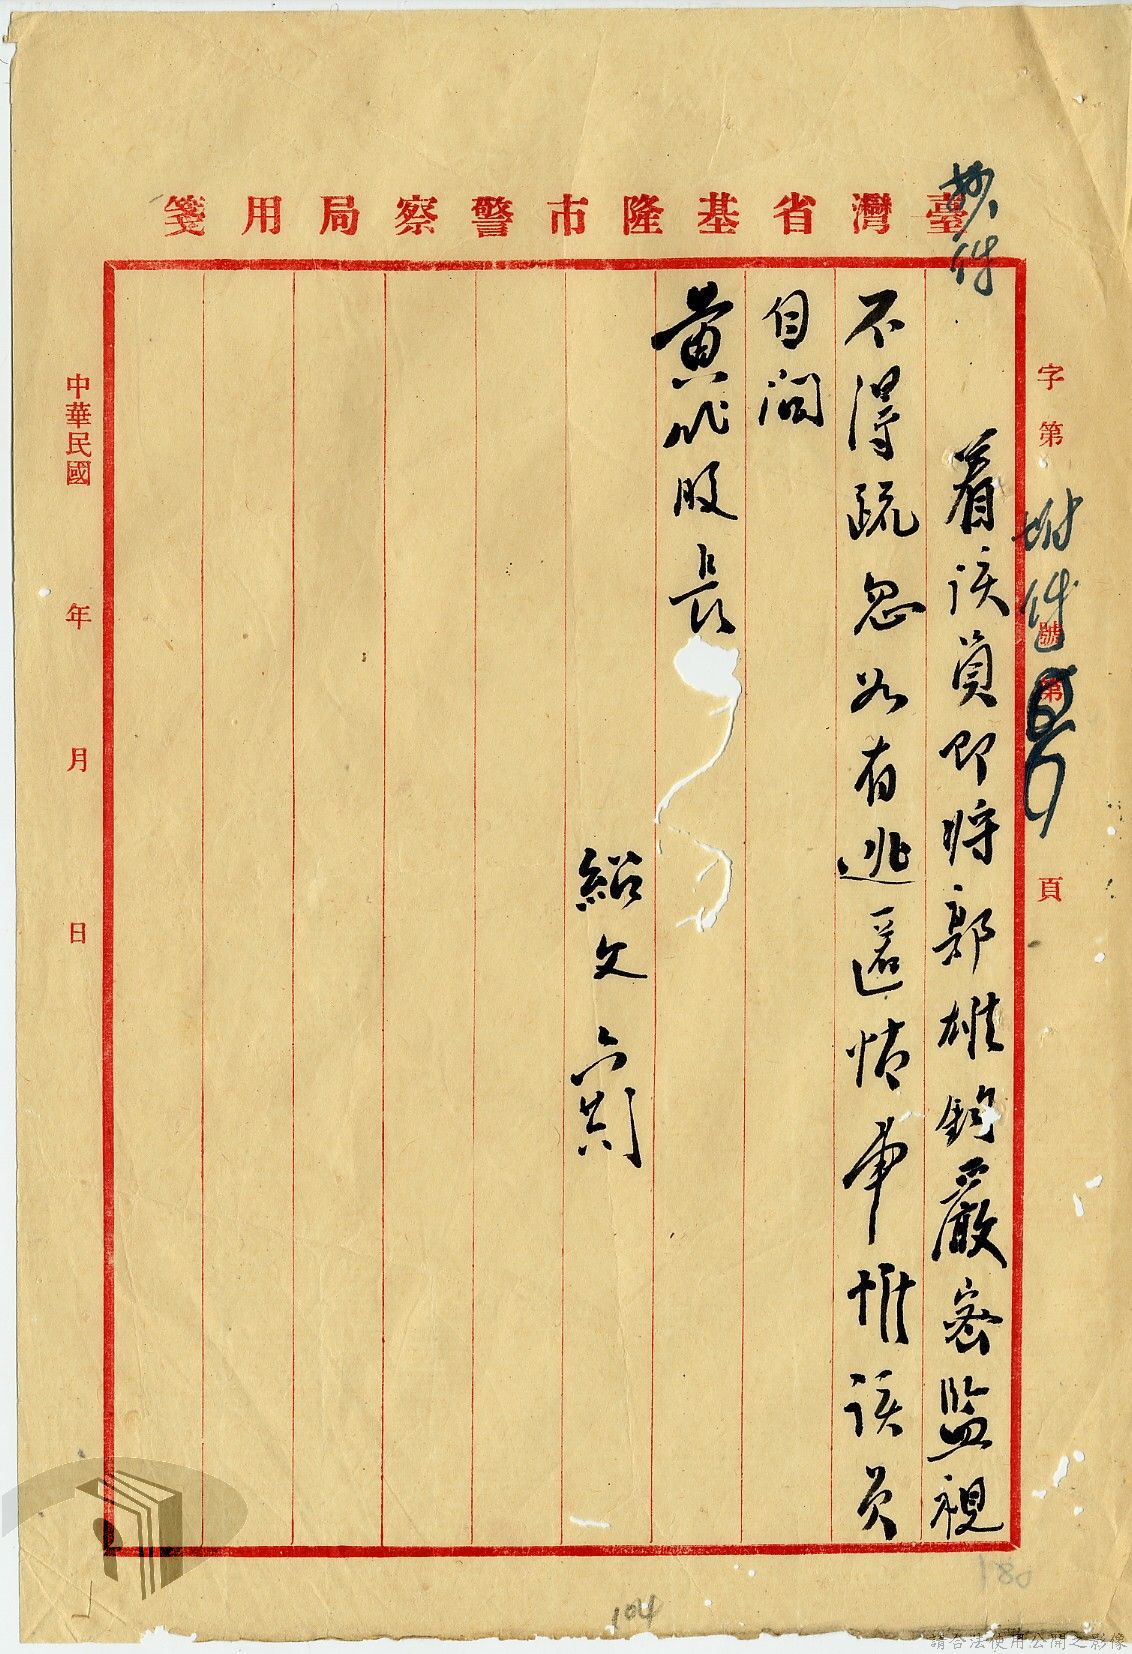 臺灣省基隆市警察局用箋
抄件
字第 號第 頁
附件
着該員即將郭雄鈞嚴密監視
不得疏忽如有逃匿情事惟該員
自問
黃 股長
紹文
中華民國 年 月 日
104
180
請合法使用公開之影像